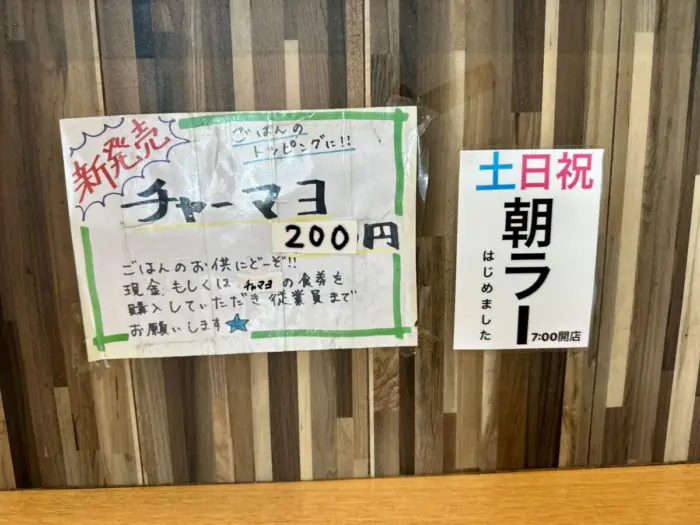 新発売
ごはんの
トッピングに!!
チャーマヨ
200円
ごはんのお供にどーぞ!!
現金、もしくは チャマヨ の食券を
購入していただき従業員まで
お願いします
土日祝
朝ラー
はじめました
7:00開店